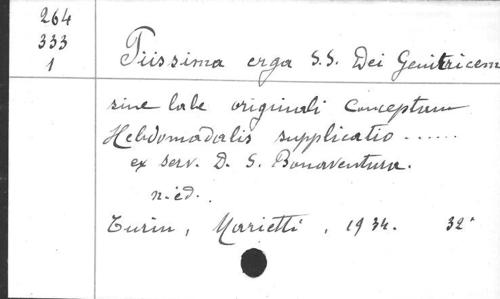 264
333
1
Piissima erga S.S. Dei Genitricem
sine labe originali Conceptam
Hebdomadalis supplicatio ......
ex serv. D. S. Bonaventura.
n. éd.
Turin, Marietti, 1934. 32°